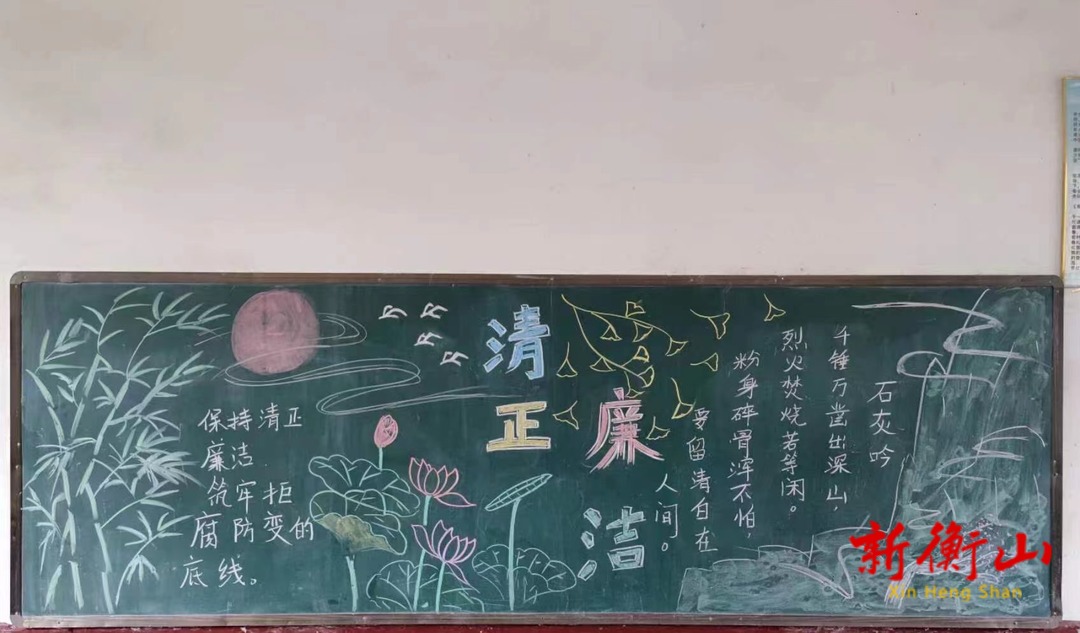 清
正
廉
洁
保持清正
廉洁
筑牢 拒
腐防变的
底线。
石灰吟
千锤万凿出深山,
烈火焚烧若等闲。
粉身碎骨浑不怕,
要留清白在
人间。
新衡山
Xin Heng Shan